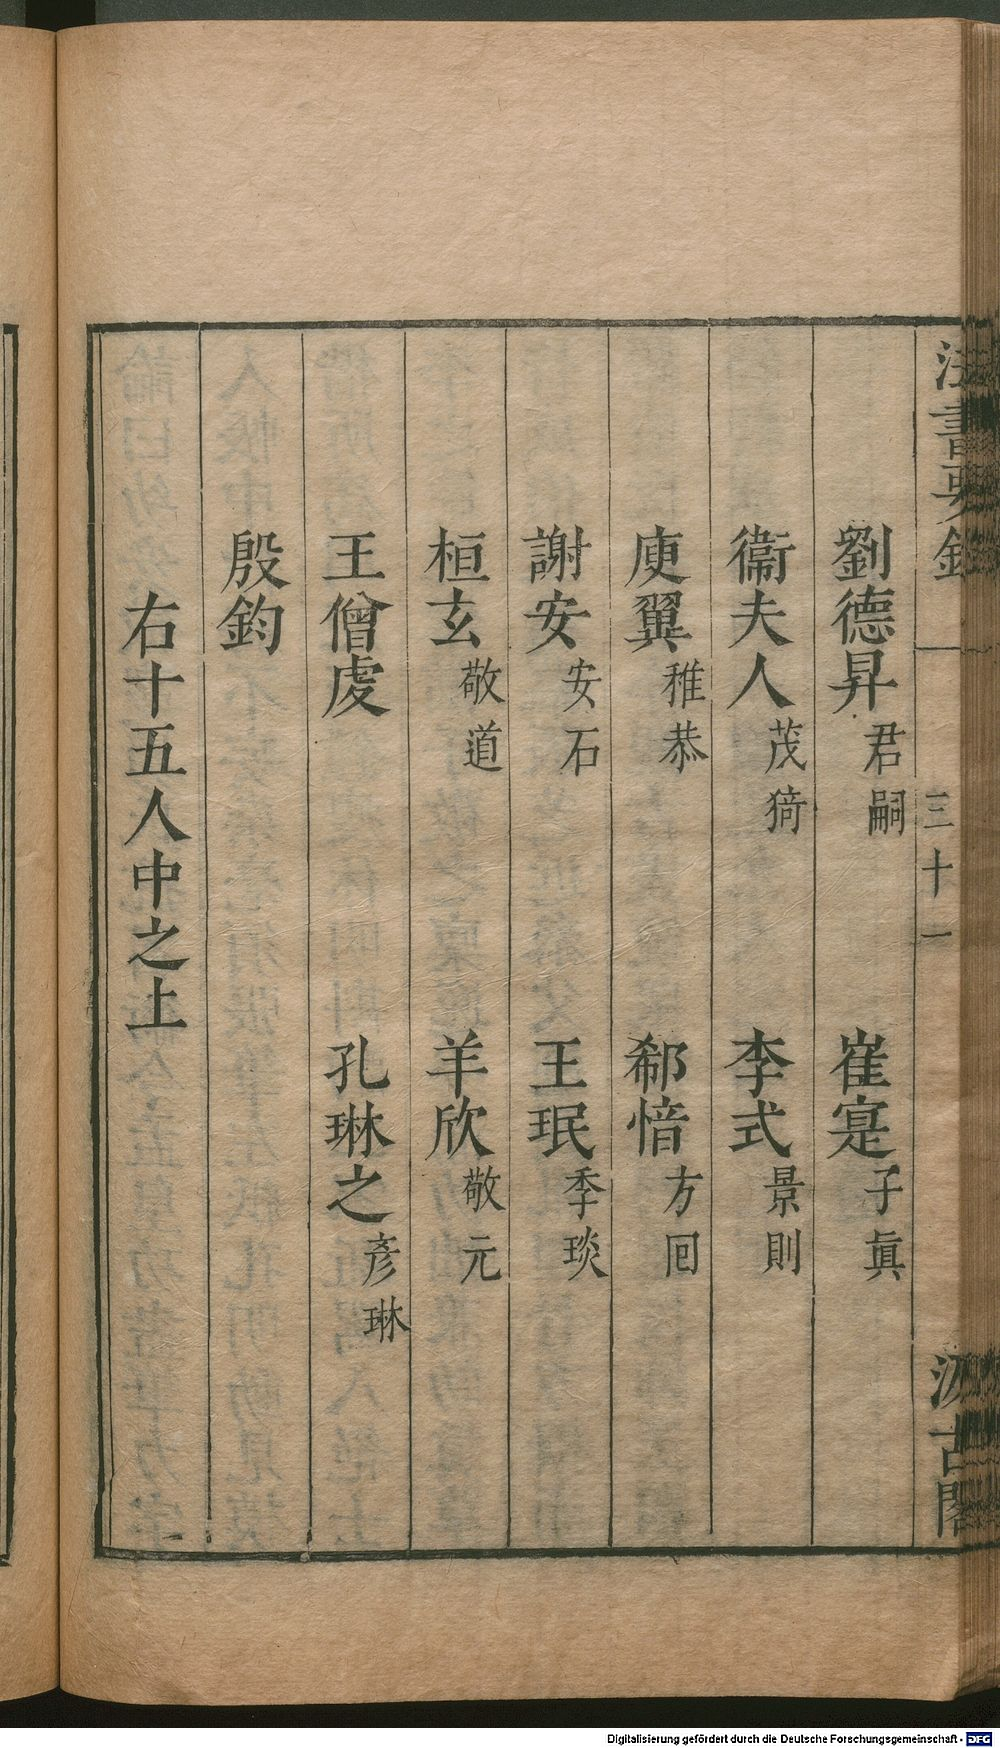 法書要錄
三十一
汲古閣
劉德昇君嗣 崔寔子眞
衞夫人茂猗 李式景則
庾翼稚恭 郗愔方囘
謝安安石 王珉季琰
桓玄敬道 羊欣敬元
王僧虔 孔琳之彥琳
殷鈞
右十五人中之上
Digitalisierung gefördert durch die Deutsche Forschungsgemeinschaft - DFG